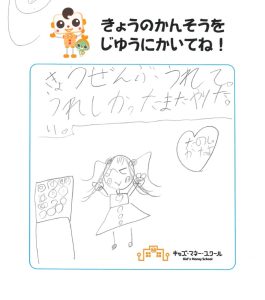 きょうのかんそうを
じゆうにかいてね!
きょうぜんぶうれて。
うれしかったまたやりた
い。
たのし
かった
キッズ・マネー・スクール
Kid's Money School